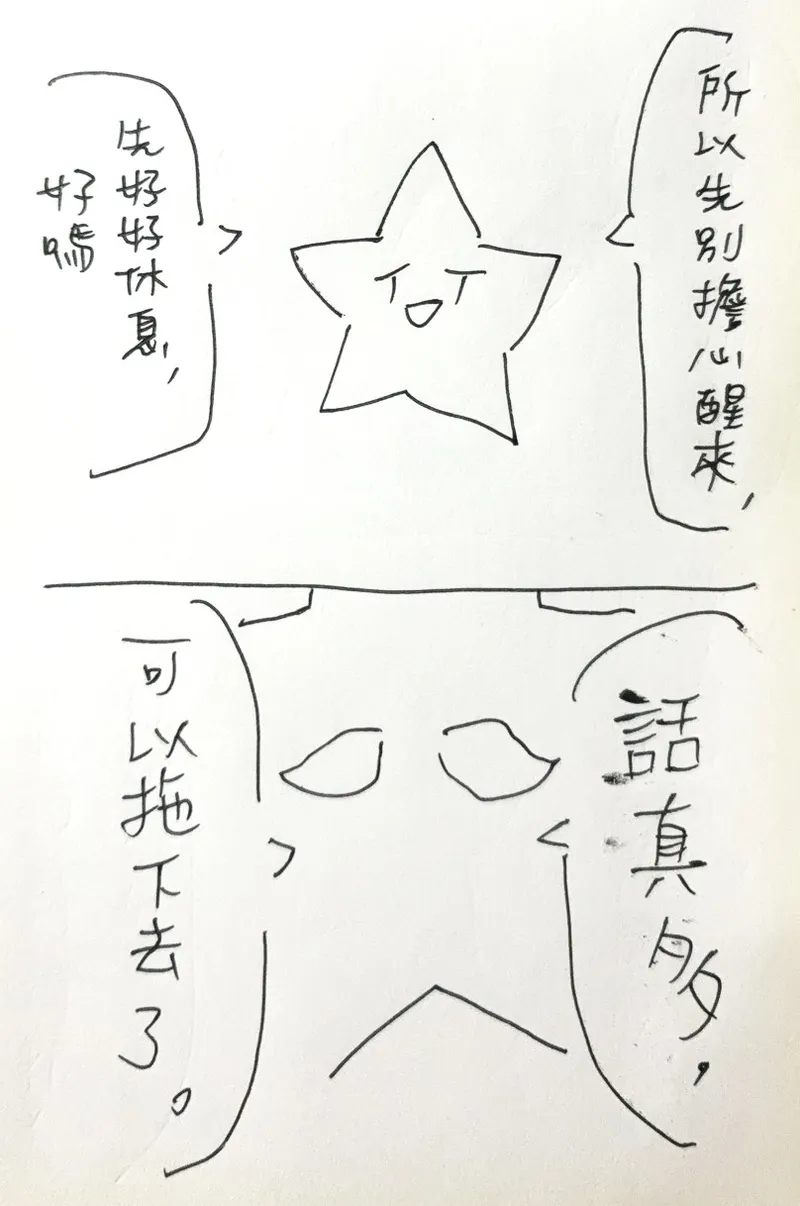 所以先別擔心醒來，
先好好休息，
好嗎
話真多，
可以拖下去了。